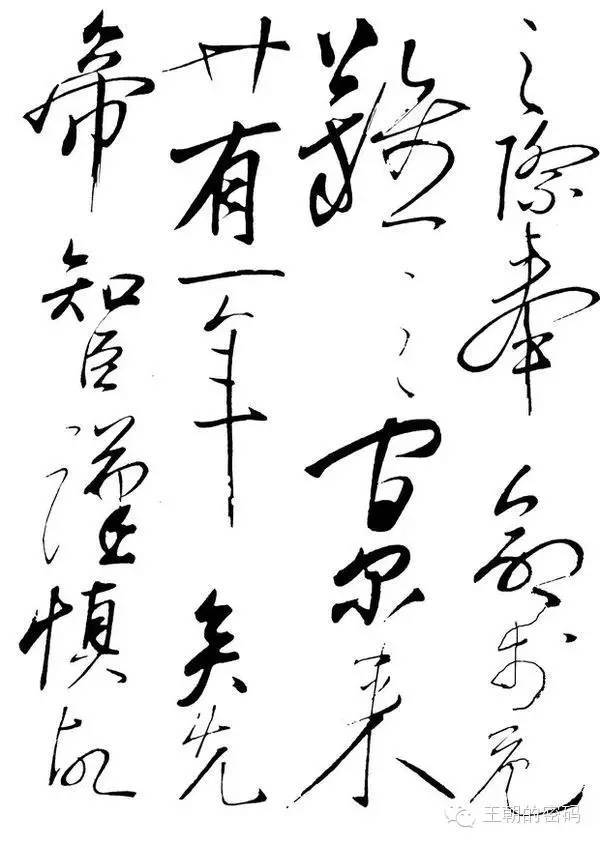 之際奉命於危
難之間爾來
廿有一年矣先
帝知臣謹慎故
王朝的密码